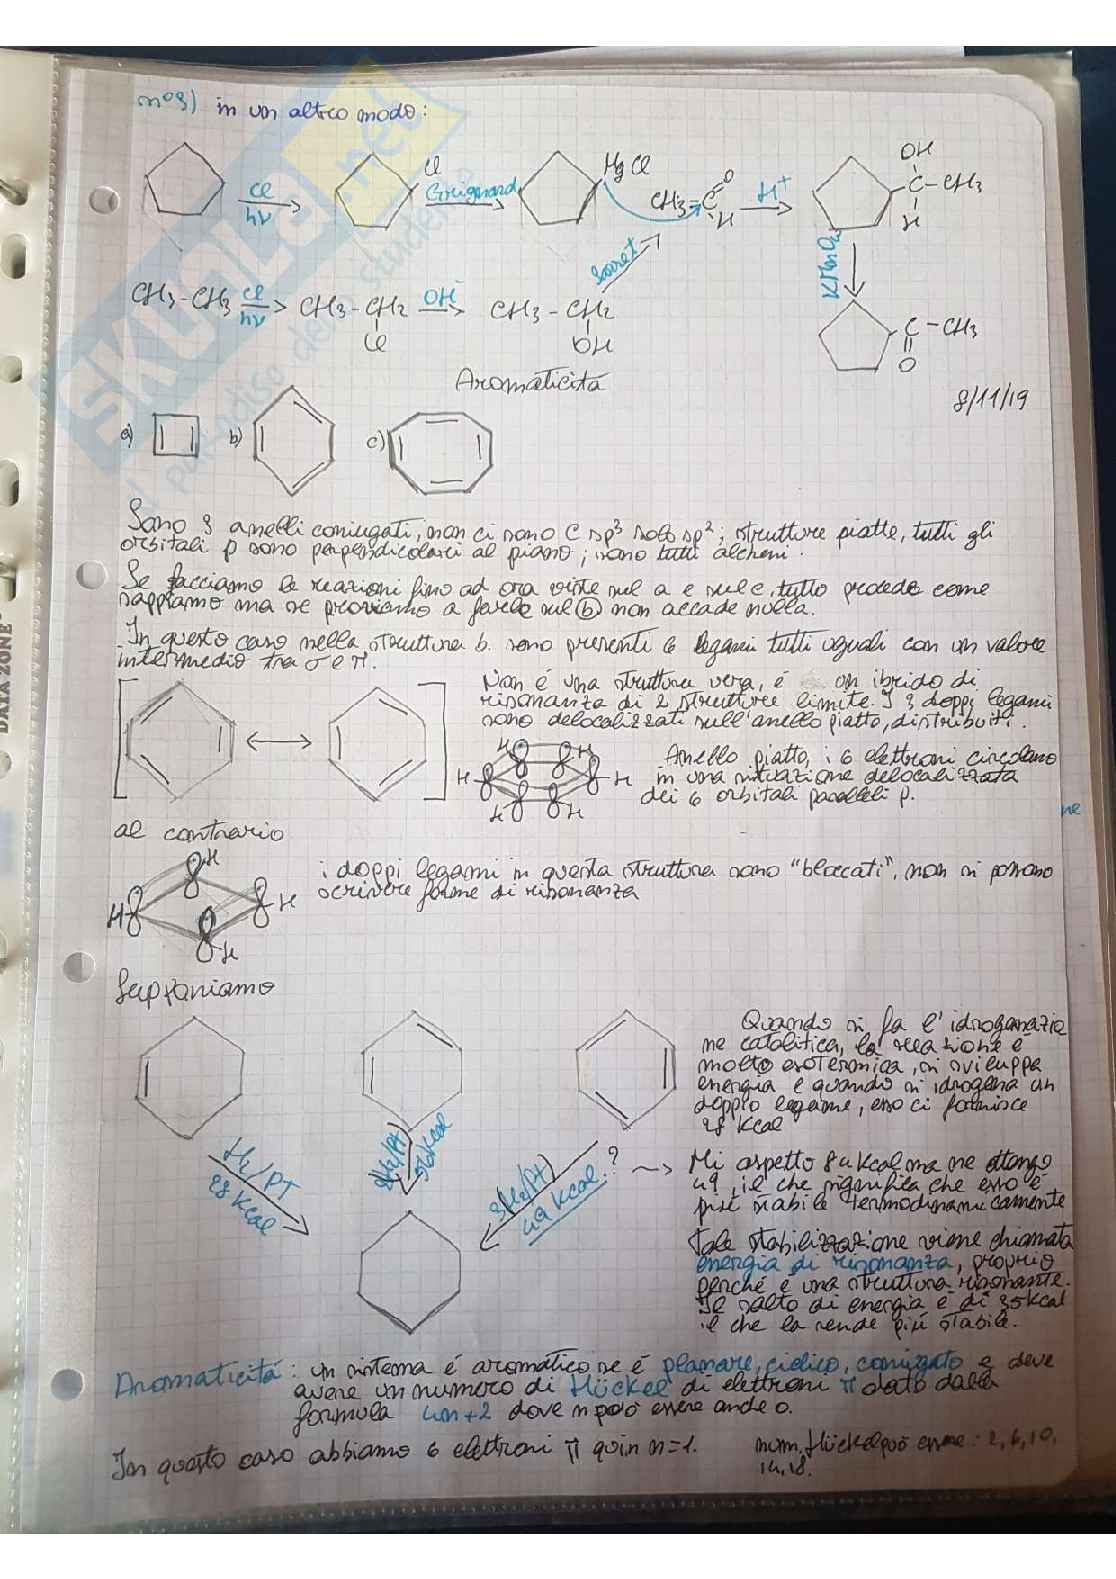 n°3) in un altro modo:
Cl
hν
Cl
Grignard
MgCl
CH3-C
O
H
H+
OH
C-CH3
H
KMnO4
CH3-CH3
Cl
hν
CH3-CH2
Cl
OH-
CH3-CH2
OH
Sarret
C-CH3
O
Aromaticità
8/11/19
a)
b)
c)
Sono 3 anelli coniugati, non ci sono C sp3 solo sp2; strutture piatte, tutti gli
orbitali p sono perpendicolari al piano; sono tutti alcheni.
Se facciamo le reazioni fino ad ora viste sul a e sul c, tutto procede come
sappiamo ma se proviamo a farle sul b non accade nulla.
In questo caso nella struttura b. sono presenti 6 legami tutti uguali con un valore
intermedio tra σ e π.
Non é una struttura vera, é un ibrido di
risonanza di 2 strutture limite. I 3 doppi legami
sono delocalizzati sull'anello piatto, distribuiti.
H H H H H H
Anello piatto, i 6 elettroni circolano
in una situazione delocalizzata
dei 6 orbitali paralleli p.
al contrario
H H H H
i doppi legami in questa struttura sono "bloccati", non si possono
scrivere forme di risonanza
Supponiamo
Quando si fa l'idrogenazio
ne catalitica, la reazione é
molto esotermica, si sviluppa
energia e quando si idrogena un
doppio legame, esso ci fornisce
28 Kcal
H2/PT
28 Kcal
2H2/Pt
56 Kcal
3H2/Pt
49 Kcal
?
Mi aspetto 84 Kcal ma ne ottengo
49, il che significa che esso é
piú stabile termodinamicamente
Tale stabilizzazione viene chiamata
energia di risonanza, proprio
perché é una struttura risonante.
Il salto di energia é di 35 Kcal
il che la rende piú stabile.
Aromaticitá: un sistema é aromatico se é planare, ciclico, coniugato e deve
avere un numero di Hückel di elettroni π dato dalla
formula 4n+2 dove n può essere anche 0.
In questo caso abbiamo 6 elettroni π quin n=1.
num. Hückel può essere: 2, 6, 10,
14, 18.
ne
SKUOLA.net
il paradiso dello studente
DATA ZONE